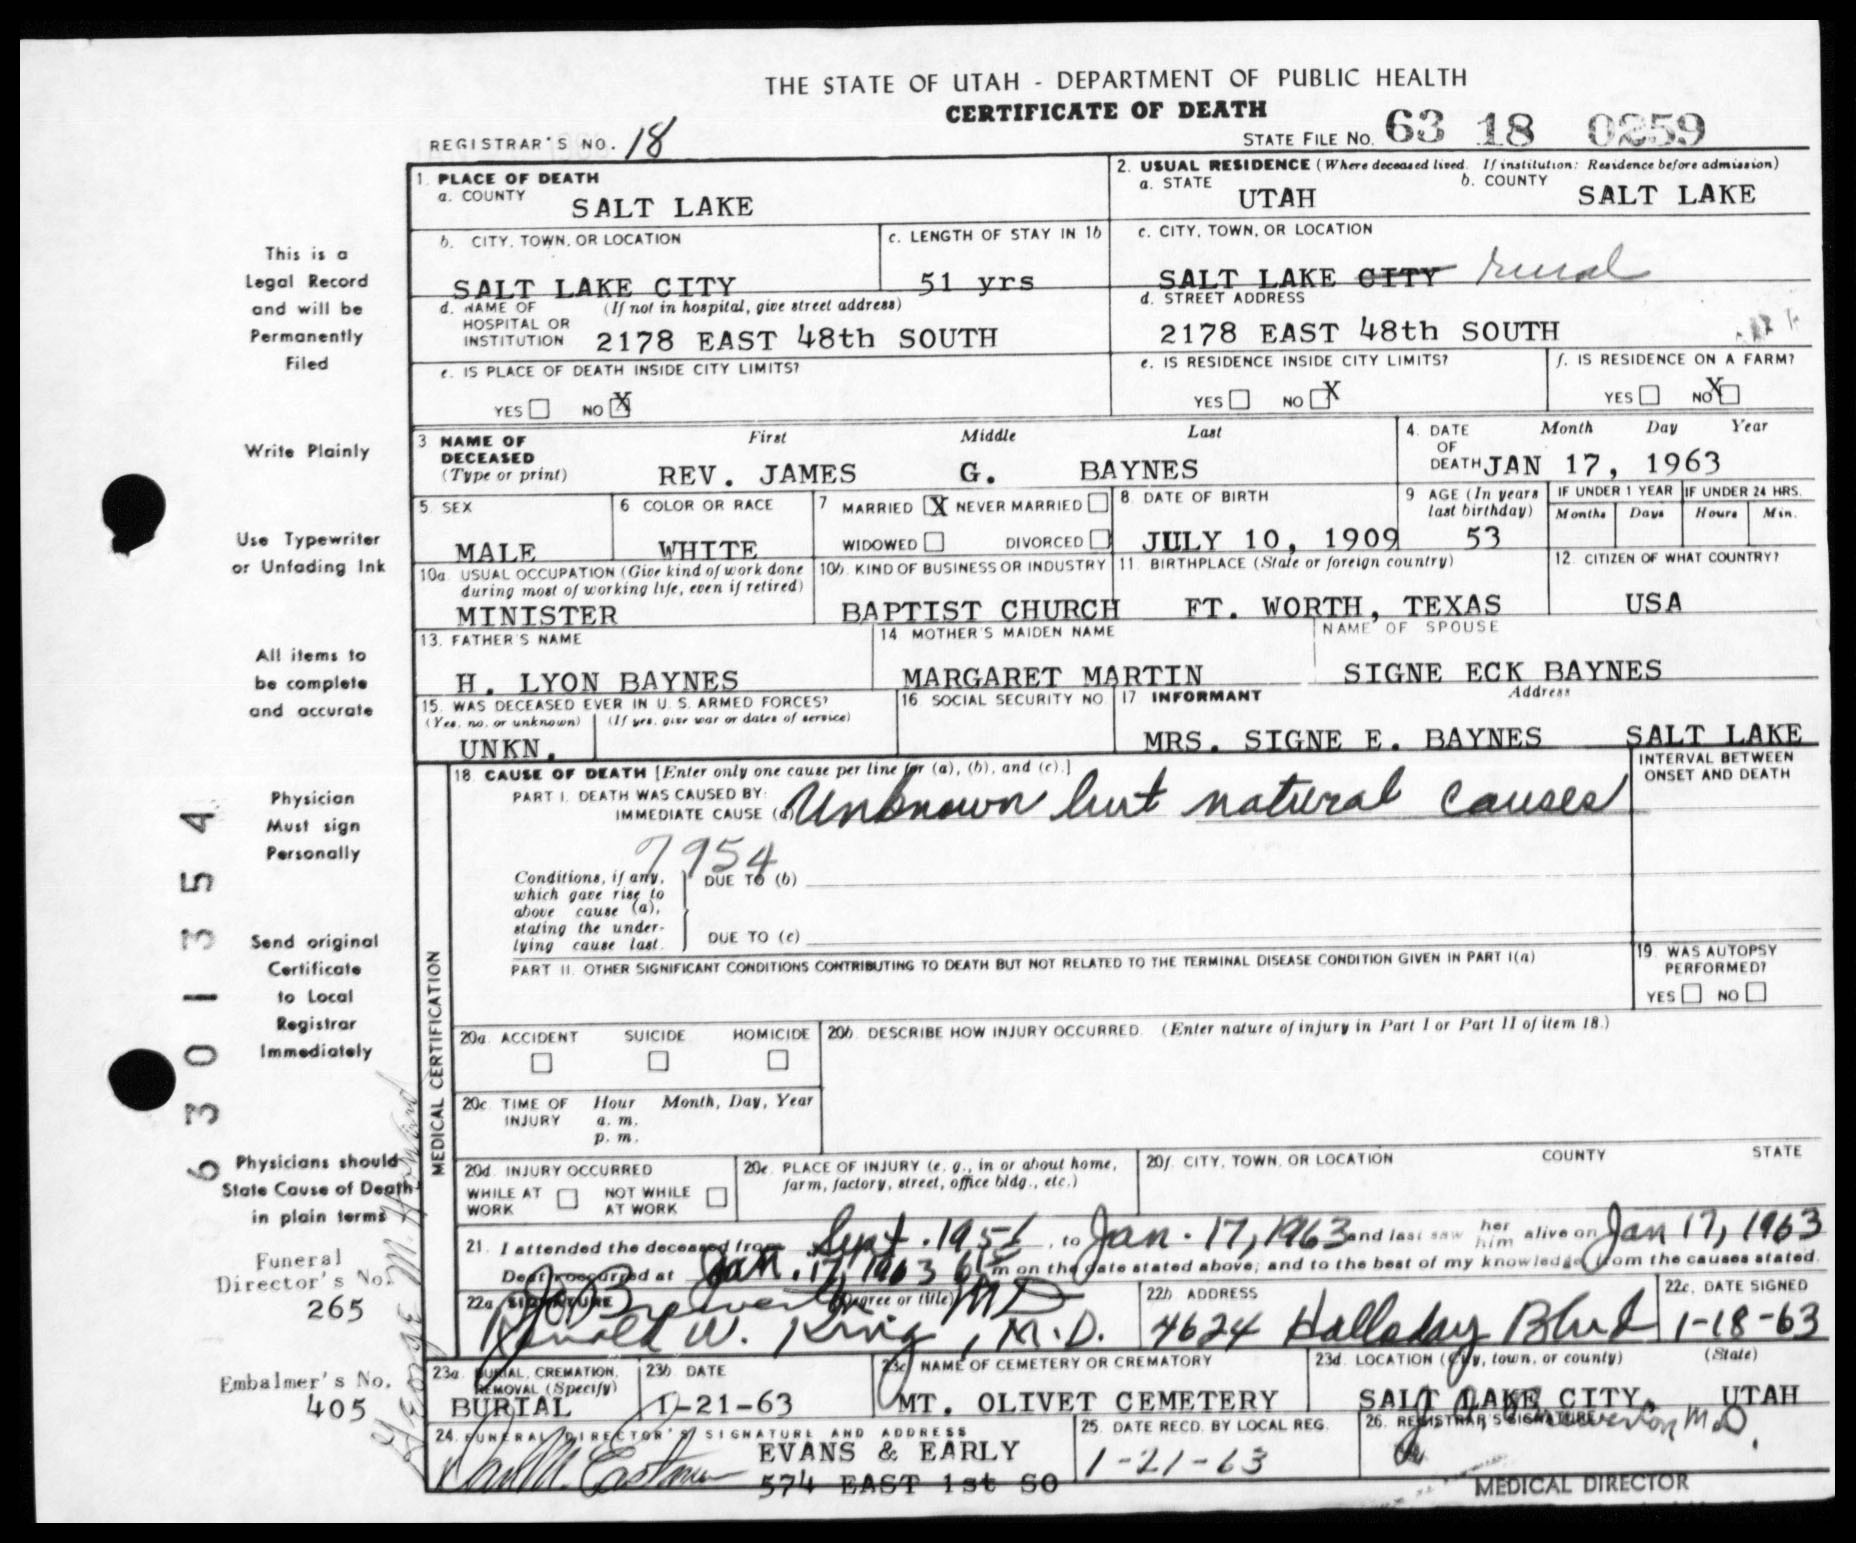 THE STATE OF UTAH - DEPARTMENT OF PUBLIC HEALTH
CERTIFICATE OF DEATH
REGISTRAR'S NO. 18
STATE FILE NO. 63 18 0259
1. PLACE OF DEATH
a. COUNTY
SALT LAKE
2. USUAL RESIDENCE (Where deceased lived. If institution: Residence before admission)
a. STATE
UTAH
b. COUNTY
SALT LAKE
b. CITY, TOWN, OR LOCATION
SALT LAKE CITY
c. LENGTH OF STAY IN 1b
51 yrs
c. CITY, TOWN, OR LOCATION
SALT LAKE CITY rural
d. NAME OF HOSPITAL OR INSTITUTION (If not in hospital, give street address)
2178 EAST 48th SOUTH
d. STREET ADDRESS
2178 EAST 48th SOUTH
e. IS PLACE OF DEATH INSIDE CITY LIMITS?
YES NO X
e. IS RESIDENCE INSIDE CITY LIMITS?
YES NO X
f. IS RESIDENCE ON A FARM?
YES NO X
3 NAME OF DECEASED (Type or print)
First Middle Last
REV. JAMES G. BAYNES
4. DATE OF DEATH
Month Day Year
JAN 17, 1963
5. SEX
MALE
6 COLOR OR RACE
WHITE
7 MARRIED X NEVER MARRIED
WIDOWED DIVORCED
8 DATE OF BIRTH
JULY 10, 1909
9 AGE (In years last birthday)
53
IF UNDER 1 YEAR
Months Days
IF UNDER 24 HRS.
Hours Min.
10a. USUAL OCCUPATION (Give kind of work done during most of working life, even if retired)
MINISTER
10b. KIND OF BUSINESS OR INDUSTRY
BAPTIST CHURCH
11. BIRTHPLACE (State or foreign country)
FT. WORTH, TEXAS
12. CITIZEN OF WHAT COUNTRY?
USA
13. FATHER'S NAME
H. LYON BAYNES
14 MOTHER'S MAIDEN NAME
MARGARET MARTIN
NAME OF SPOUSE
SIGNE ECK BAYNES
15. WAS DECEASED EVER IN U.S. ARMED FORCES?
(Yes, no, or unknown) (If yes, give war or dates of service)
UNKN.
16 SOCIAL SECURITY NO.
17 INFORMANT Address
MRS. SIGNE E. BAYNES SALT LAKE
MEDICAL CERTIFICATION
18 CAUSE OF DEATH [Enter only one cause per line for (a), (b), and (c).]
INTERVAL BETWEEN ONSET AND DEATH
PART I. DEATH WAS CAUSED BY:
IMMEDIATE CAUSE (a) Unknown but natural causes
7954
Conditions, if any, which gave rise to above cause (a), stating the underlying cause last.
DUE TO (b)
DUE TO (c)
PART II. OTHER SIGNIFICANT CONDITIONS CONTRIBUTING TO DEATH BUT NOT RELATED TO THE TERMINAL DISEASE CONDITION GIVEN IN PART I(a)
19. WAS AUTOPSY PERFORMED?
YES NO
20a. ACCIDENT SUICIDE HOMICIDE
20b. DESCRIBE HOW INJURY OCCURRED. (Enter nature of injury in Part I or Part II of item 18.)
20c. TIME OF INJURY Hour Month, Day, Year
a. m.
p. m.
20d. INJURY OCCURRED
WHILE AT WORK NOT WHILE AT WORK
20e. PLACE OF INJURY (e. g., in or about home, farm, factory, street, office bldg., etc.)
20f. CITY, TOWN, OR LOCATION COUNTY STATE
21. I attended the deceased from Sept. 1951, to Jan. 17, 1963 and last saw her him alive on Jan 17, 1963
Death occurred at Jan. 17, 1963 615 m on the date stated above; and to the best of my knowledge, from the causes stated.
22a. SIGNATURE (Degree or title) MD
Ronald W. King, M.D.
22b. ADDRESS
4624 Holladay Blvd
22c. DATE SIGNED
1-18-63
23a. BURIAL, CREMATION, REMOVAL (Specify)
BURIAL
23b. DATE
1-21-63
23c. NAME OF CEMETERY OR CREMATORY
MT. OLIVET CEMETERY
23d. LOCATION (City, town, or county) (State)
SALT LAKE CITY, UTAH
24. FUNERAL DIRECTOR'S SIGNATURE AND ADDRESS
EVANS & EARLY
574 EAST 1st SO
25. DATE RECD. BY LOCAL REG.
1-21-63
26. REGISTRAR'S SIGNATURE
M.D.
MEDICAL DIRECTOR
This is a
Legal Record
and will be
Permanently
Filed
Write Plainly
Use Typewriter
or Unfading Ink
All items to
be complete
and accurate
Physician
Must sign
Personally
Send original
Certificate
to Local
Registrar
Immediately
Physicians should
State Cause of Death
in plain terms
Funeral
Director's No.
265
Embalmer's No.
405
6301354
George M.